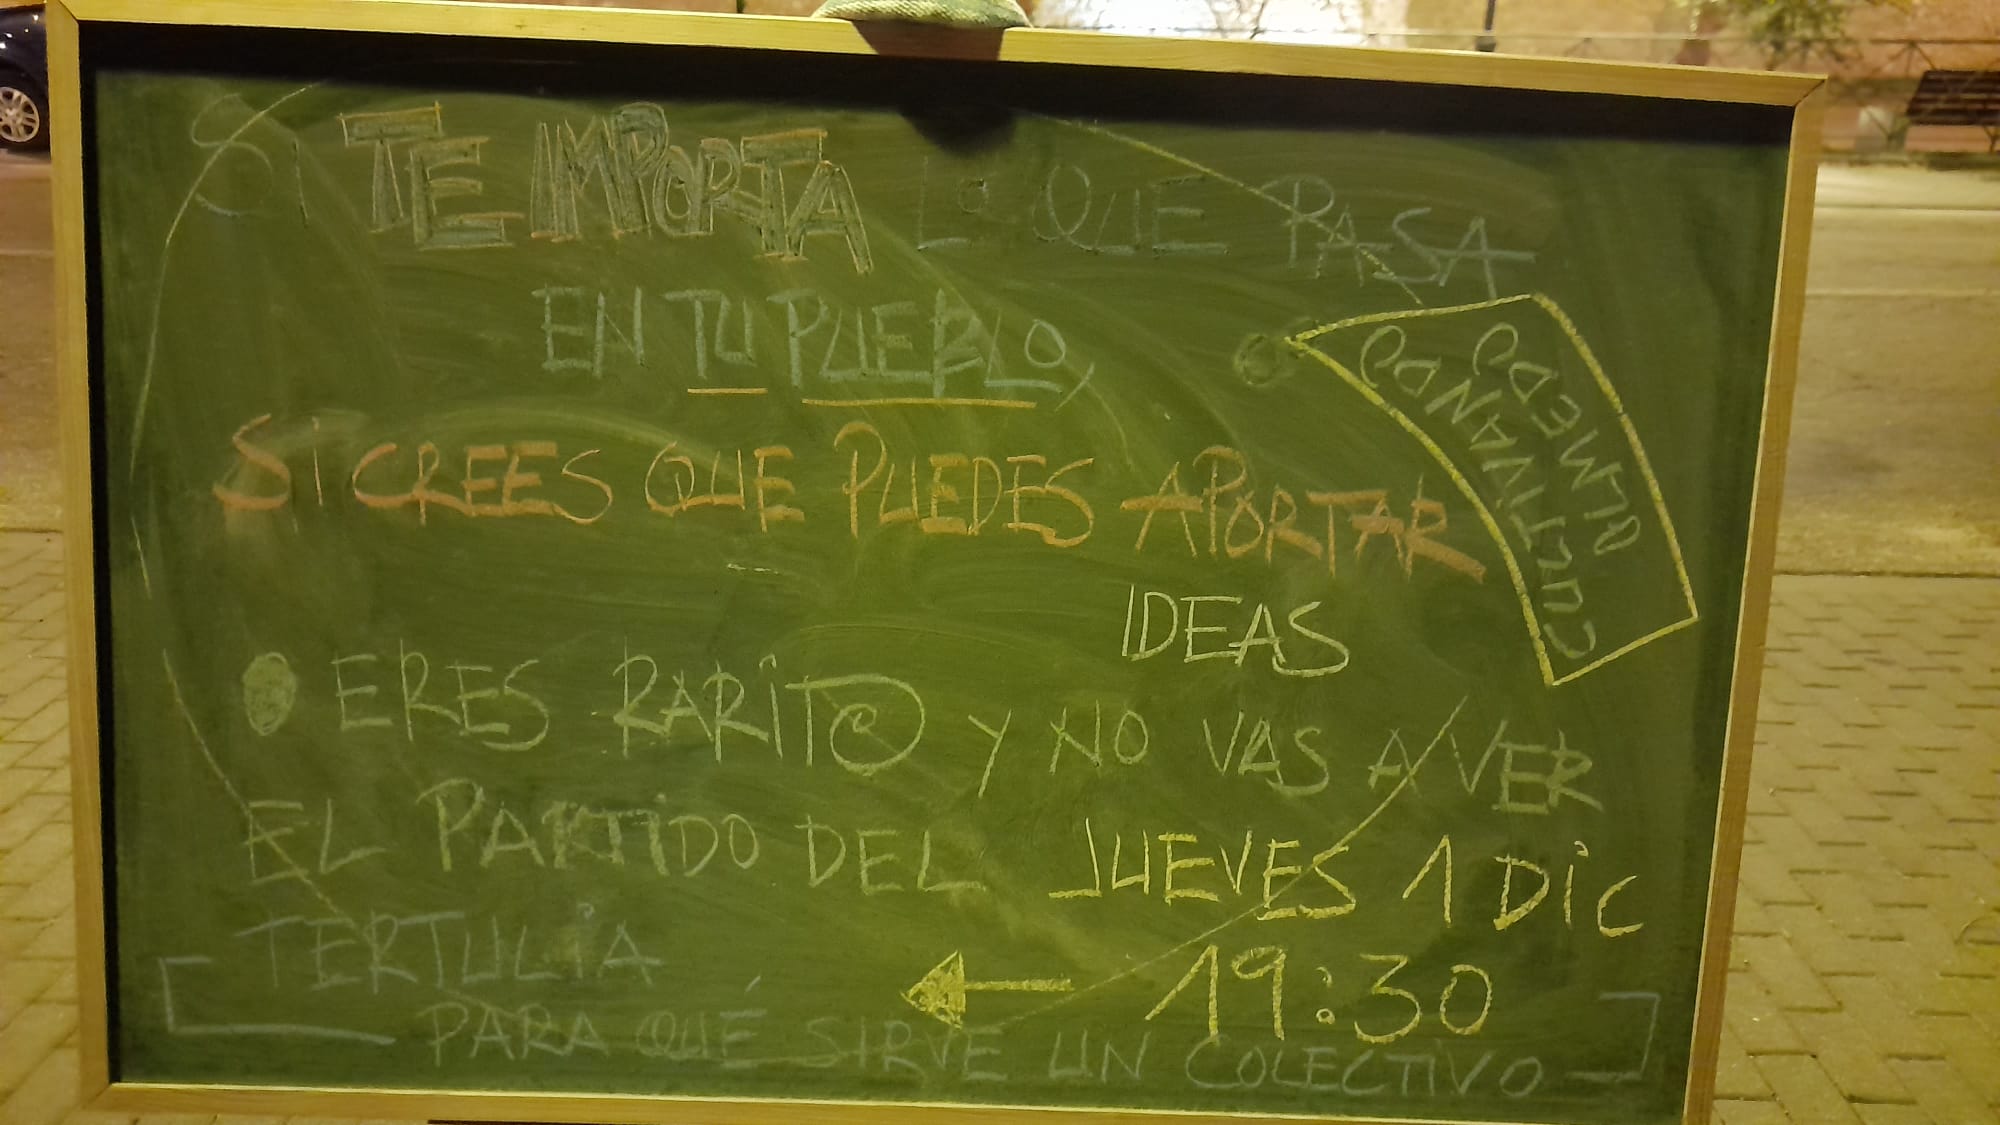 Si TE IMPORTA LO QUE PASA
EN TU PUEBLO,
SI CREES QUE PUEDES APORTAR
IDEAS
CULTIVANDO
OLMEDO
ERES RARIT@ Y NO VAS A VER
EL PARTIDO DEL JUEVES 1 DIC
TERTULIA ← 19:30
PARA QUÉ SIRVE UN COLECTIVO